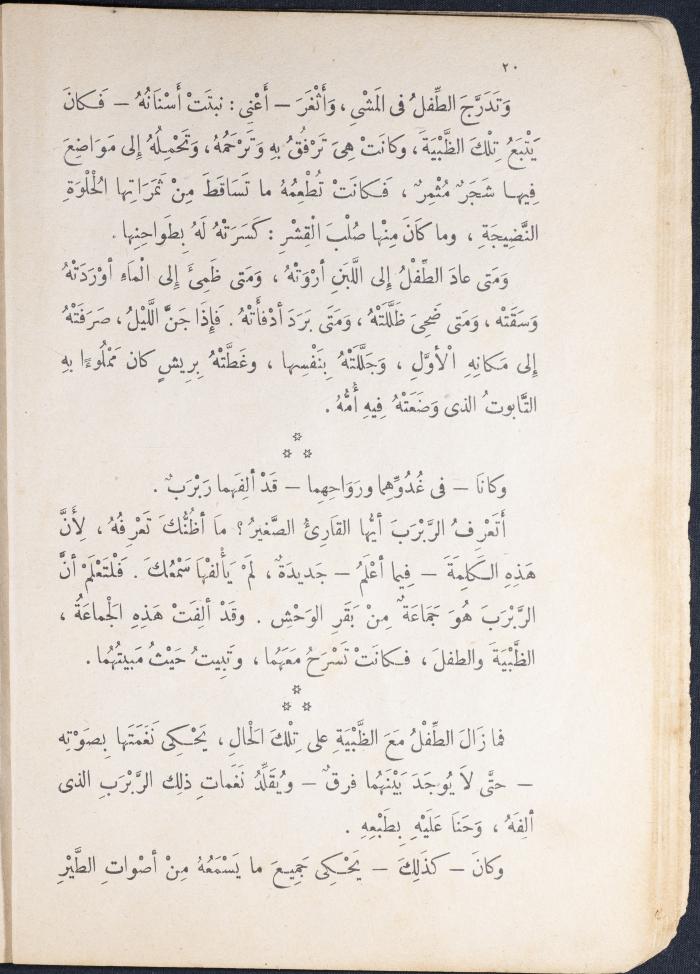 ٢٠
وَتَدَرَّجَ الطِّفلُ فى المَشْىِ ، وَأَثْغَرَ — أَعْنِى : نبتَتْ أَسْنَانُهُ — فَكانَ
يَتْبَعُ تِلْكَ الظَّبْيَةَ ، وكانَتْ هِىَ تَرْفُقُ بِهِ وَتَرْحَمُهُ ، وَتَحْمِلُهُ إِلى مَوَاضِعَ
فِيها شَجَرٌ مُثْمِرٌ ، فَكانَتْ تُطْعِمُهُ ما تَسَاقَطَ مِنْ ثَمَرَاتِها الْحُلْوَةِ
النَّضِيجَةِ ، وما كَانَ مِنْها صُلْبَ الْقِشْرِ : كَسَرَتْهُ لَهُ بِطَواحِنِها .
وَمَتى عادَ الطِّفْلُ إِلى اللَّبَنِ أرْوَتْهُ ، وَمَتى ظَمِئَ إِلى الْماءِ أوْرَدَتْهُ
وَسَقَتْه ، وَمَتى ضَحِىَ ظَلَّلَتْهُ ، وَمَتَى بَرَدَ أدْفأَتْهُ . فَإِذَا جَنَّ اللَّيْلُ ، صَرَفَتْهُ
إِلى مَكانِهِ الْأوَّلِ ، وَجَلَّلَتْهُ بِنَفْسِها ، وغَطَّتْهُ بِرِيشٍ كان مَمْلُوءًا بِهِ
التَّابوتُ الذى وَضَعَتْهُ فِيهِ أُمُّهُ .
وكانَا — فى غُدُوِّهِما ورَوَاحِهِما — قَدْ ألِفَهُما رَبْرَبٌ .
أَتَعْرِفُ الرَّبْرَبَ أيُّها القَارِئُ الصَّغيرُ ؟ ما أظُنُّكَ تَعْرِفُهُ ، لِأَنَّ
هَذِهِ الكَلِمَةَ — فِيما أعْلَمُ — جَديدَةٌ ، لَمْ يَأْلَفْها سَمْعُكَ . فَلْتَعْلَمْ أنَّ
الرَّبْرَبَ هُوَ جَمَاعَةٌ مِنْ بَقَرِ الوَحْشِ . وقَدْ ألِفَتْ هَذِهِ الْجماعَةُ ،
الظَّبْيَةَ والطفلَ ، فَكانَتْ تَسْرَحُ مَعَهُما ، وَتَبِيتُ حَيْثُ مَبِيتُهُما .
فما زَالَ الطِّفْلُ مَعَ الظَّبْيَةِ على تِلْكَ الْحالِ ، يَحْكِى نَغَمَتَها بِصَوْتِهِ
— حتَّى لَا يُوجَدَ بَيْنَهُما فرقٌ — ويُقَلِّدُ نَغَماتِ ذلِك الرَّبْرَبِ الذى
ألِفَهُ ، وَحَنَا عَلَيْهِ بِطَبْعِهِ .
وكانَ — كذَلِكَ — يَحْكِى جَمِيعَ ما يَسْمَعُهُ مِنْ أصْواتِ الطَّيْرِ